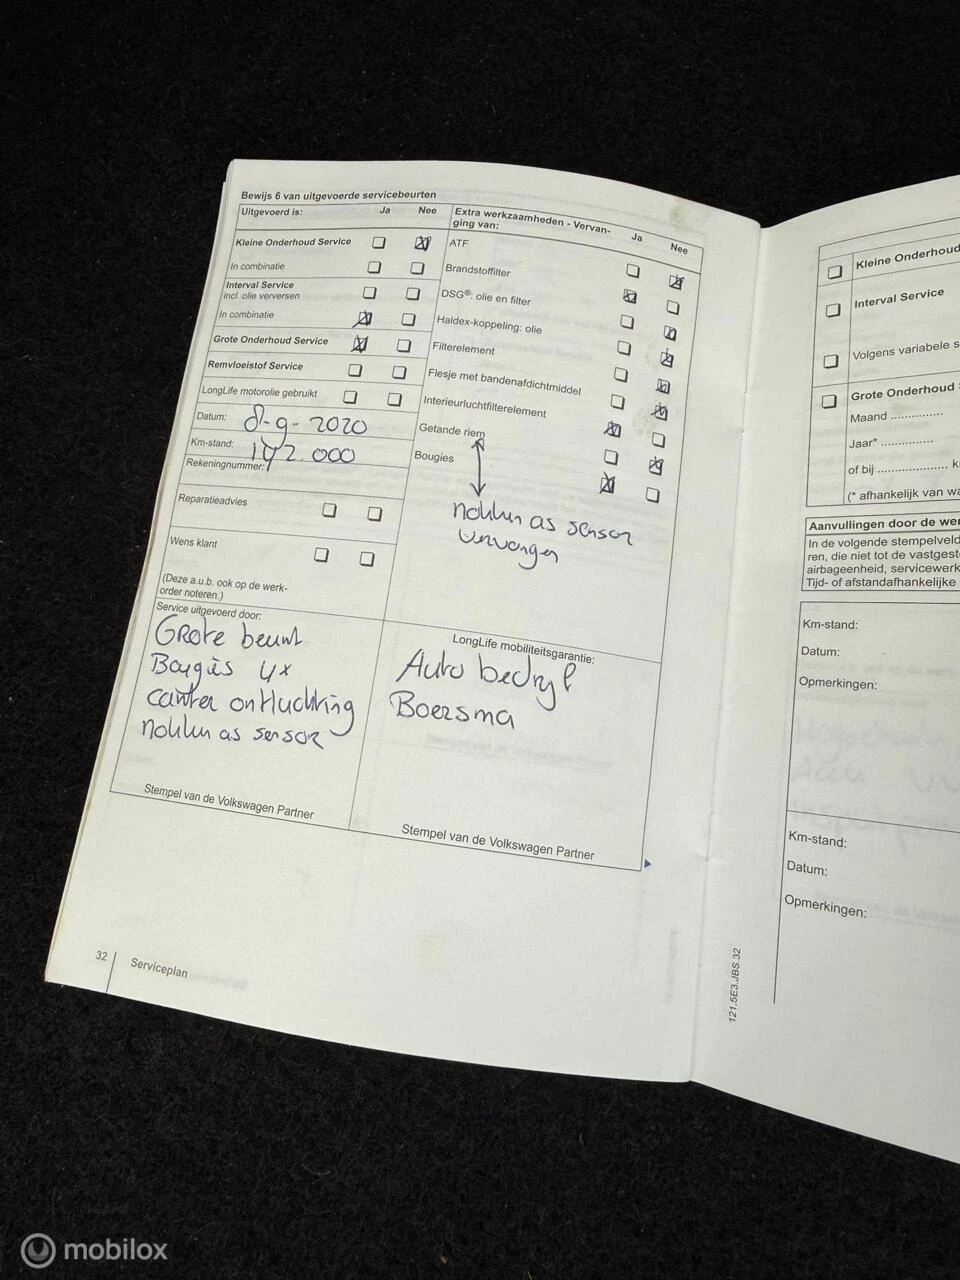 Bewijs 6 van uitgevoerde servicebeurten
Uitgevoerd is: Ja Nee
Kleine Onderhoud Service
In combinatie
Interval Service
incl. olie verversen
In combinatie
Grote Onderhoud Service
Remvloeistof Service
LongLife motorolie gebruikt
Datum: 8-9-2020
Km-stand: 142.000
Rekeningnummer:
Reparatieadvies
Wens klant
(Deze a.u.b. ook op de werk-
order noteren.)
Extra werkzaamheden - Vervan-
ging van: Ja Nee
ATF
Brandstoffilter
DSG®: olie en filter
Haldex-koppeling: olie
Filterelement
Flesje met bandenafdichtmiddel
Interieurluchtfilterelement
Getande riem
Bougies
nokken as sensor
vervangen
Service uitgevoerd door:
Grote beurt
Bougies 4x
carter ontluchting
nokken as sensor
Stempel van de Volkswagen Partner
LongLife mobiliteitsgarantie:
Auto bedrijf
Boersma
Stempel van de Volkswagen Partner
32 Serviceplan
Kleine Onderhoud
Interval Service
Volgens variabele
Grote Onderhoud
Maand
Jaar*
of bij
(* afhankelijk van
Aanvullingen door de
In de volgende stempelveld
ren, die niet tot de
airbageenheid,
Tijd- of afstandafhankelijke
Km-stand:
Datum:
Opmerkingen:
Km-stand:
Datum:
Opmerkingen:
121.5E3.JBS.32
mobilox